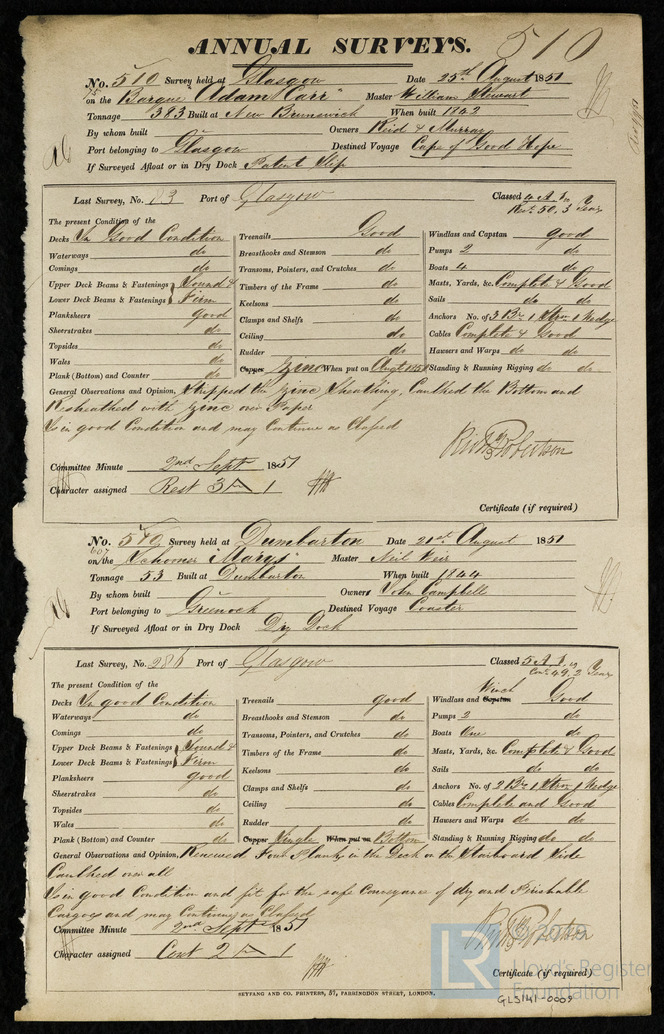 ANNUAL SURVEYS. 510
No. 510 Survey held at Glasgow Date 25th August 1851
75 on the Barque "Adam Carr" Master William Stewart
Tonnage 383 Built at New Brunswick When built 1842
By whom built Owners Reid & Murray
Port belonging to Glasgow Destined Voyage Cape of Good Hope
If Surveyed Afloat or in Dry Dock Patent Slip
Last Survey, No. 83 Port of Glasgow Classed 4 A 1
Rest. 50, 3 Years
The present Condition of the
Decks In Good Condition Treenails Good Windlass and Capstan good
Waterways do Breasthooks and Stemson do Pumps 2 do
Comings do Transoms, Pointers, and Crutches do Boats 4 do
Upper Deck Beams & Fastenings Sound & Timbers of the Frame do Masts, Yards, &c. Complete & Good
Lower Deck Beams & Fastenings Firm Keelsons do Sails do do
Planksheers good Clamps and Shelfs do Anchors No. of 3 Br 1 Strm 1 Kedge
Sheerstrakes do Ceiling do Cables Complete & Good
Topsides do Rudder do Hawsers and Warps do do
Wales do Copper Zinc When put on Augt 1851 Standing & Running Rigging do do
Plank (Bottom) and Counter do
General Observations and Opinion, Stripped the Zinc Sheathing, Caulked the Bottom and
Resheathed with Zinc over Paper
Is in good Condition and may Continue as Classed
Robertson
Committee Minute 2nd Sept 1851
Character assigned Rest 3 A 1
Certificate (if required)
No. 510 Survey held at Dumbarton Date 21st August 1851
607 on the Schooner "Marys" Master Neil Weir
Tonnage 53 Built at Dumbarton When built 1844
By whom built Owners John Campbell
Port belonging to Greenock Destined Voyage Coaster
If Surveyed Afloat or in Dry Dock Dry Dock
Last Survey, No. 286 Port of Glasgow Classed 5 A 1
Cont. 49, 2 Years
The present Condition of the
Decks In good Condition Treenails good Windlass and Capstan Winch Good
Waterways do Breasthooks and Stemson do Pumps 2 do
Comings do Transoms, Pointers, and Crutches do Boats One do
Upper Deck Beams & Fastenings Sound & Timbers of the Frame do Masts, Yards, &c. Complete & Good
Lower Deck Beams & Fastenings Firm Keelsons do Sails do do
Planksheers good Clamps and Shelfs do Anchors No. of 2 Br 1 Strm 1 Kedge
Sheerstrakes do Ceiling do Cables Complete and Good
Topsides do Rudder do Hawsers and Warps do do
Wales do Copper Single When put on Bottom Standing & Running Rigging do do
Plank (Bottom) and Counter do
General Observations and Opinion, Renewed Four Planks in the Deck on the Starboard Side
Caulked over all
Is in good Condition and fit for the safe Conveyance of dry and Perishable
Cargoes and may Continue as Classed
Robertson
Committee Minute 2nd Sept 1851
Character assigned Cont 2 A 1
Certificate (if required)
LR Lloyd's Register Foundation
SEYFANG AND CO. PRINTERS, 57, FARRINGDON STREET, LONDON.
GLS141-0009